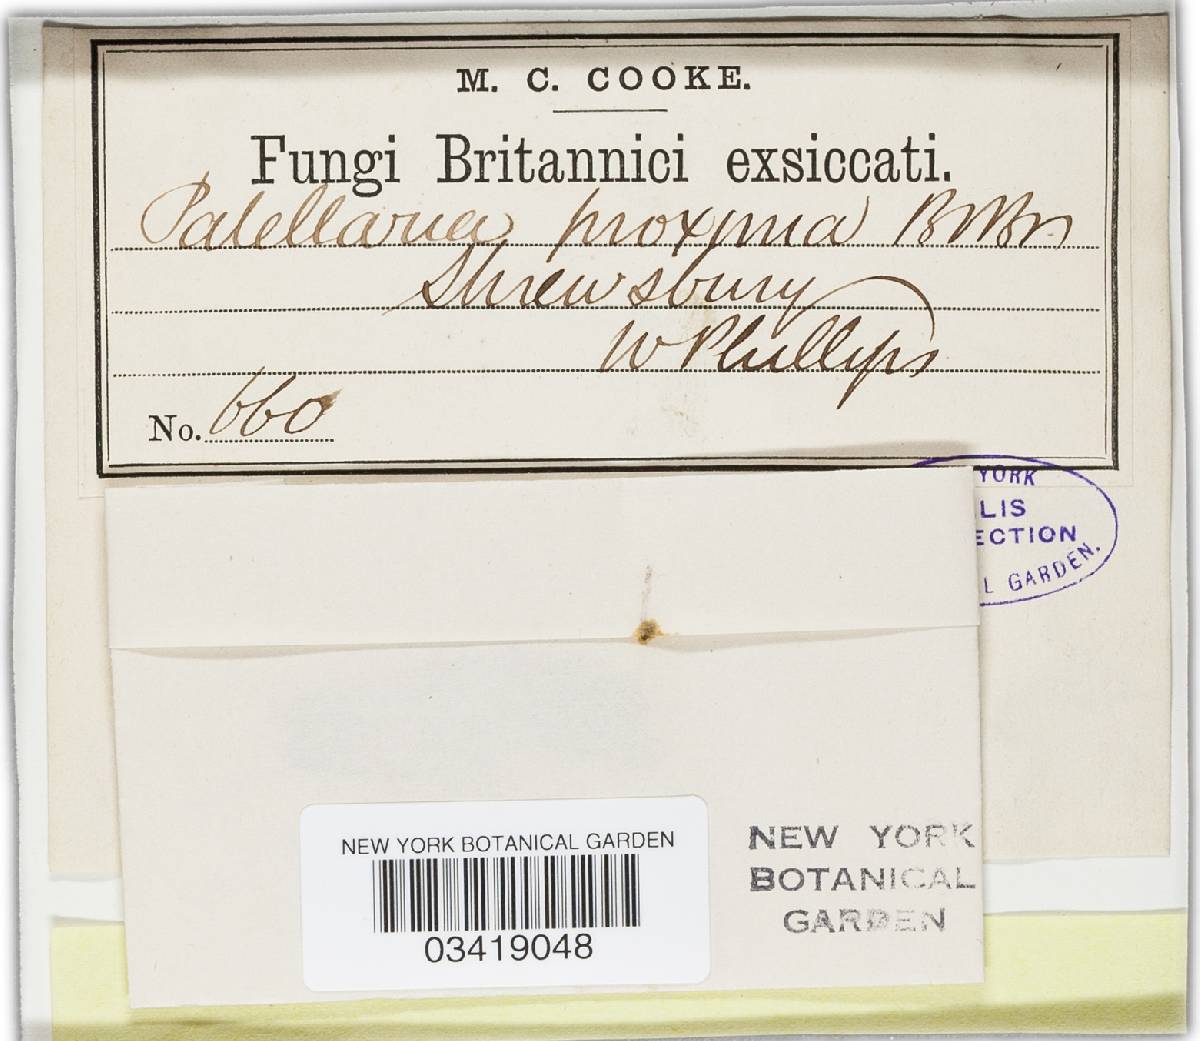 M. C. COOKE.
Fungi Britannici exsiccati.
Patellaria proxima B&Br
Shrewsbury
W Phillips
No. 660
YORK
LIS
ECTION
L GARDEN.
NEW YORK BOTANICAL GARDEN
03419048
NEW YORK
BOTANICAL
GARDEN